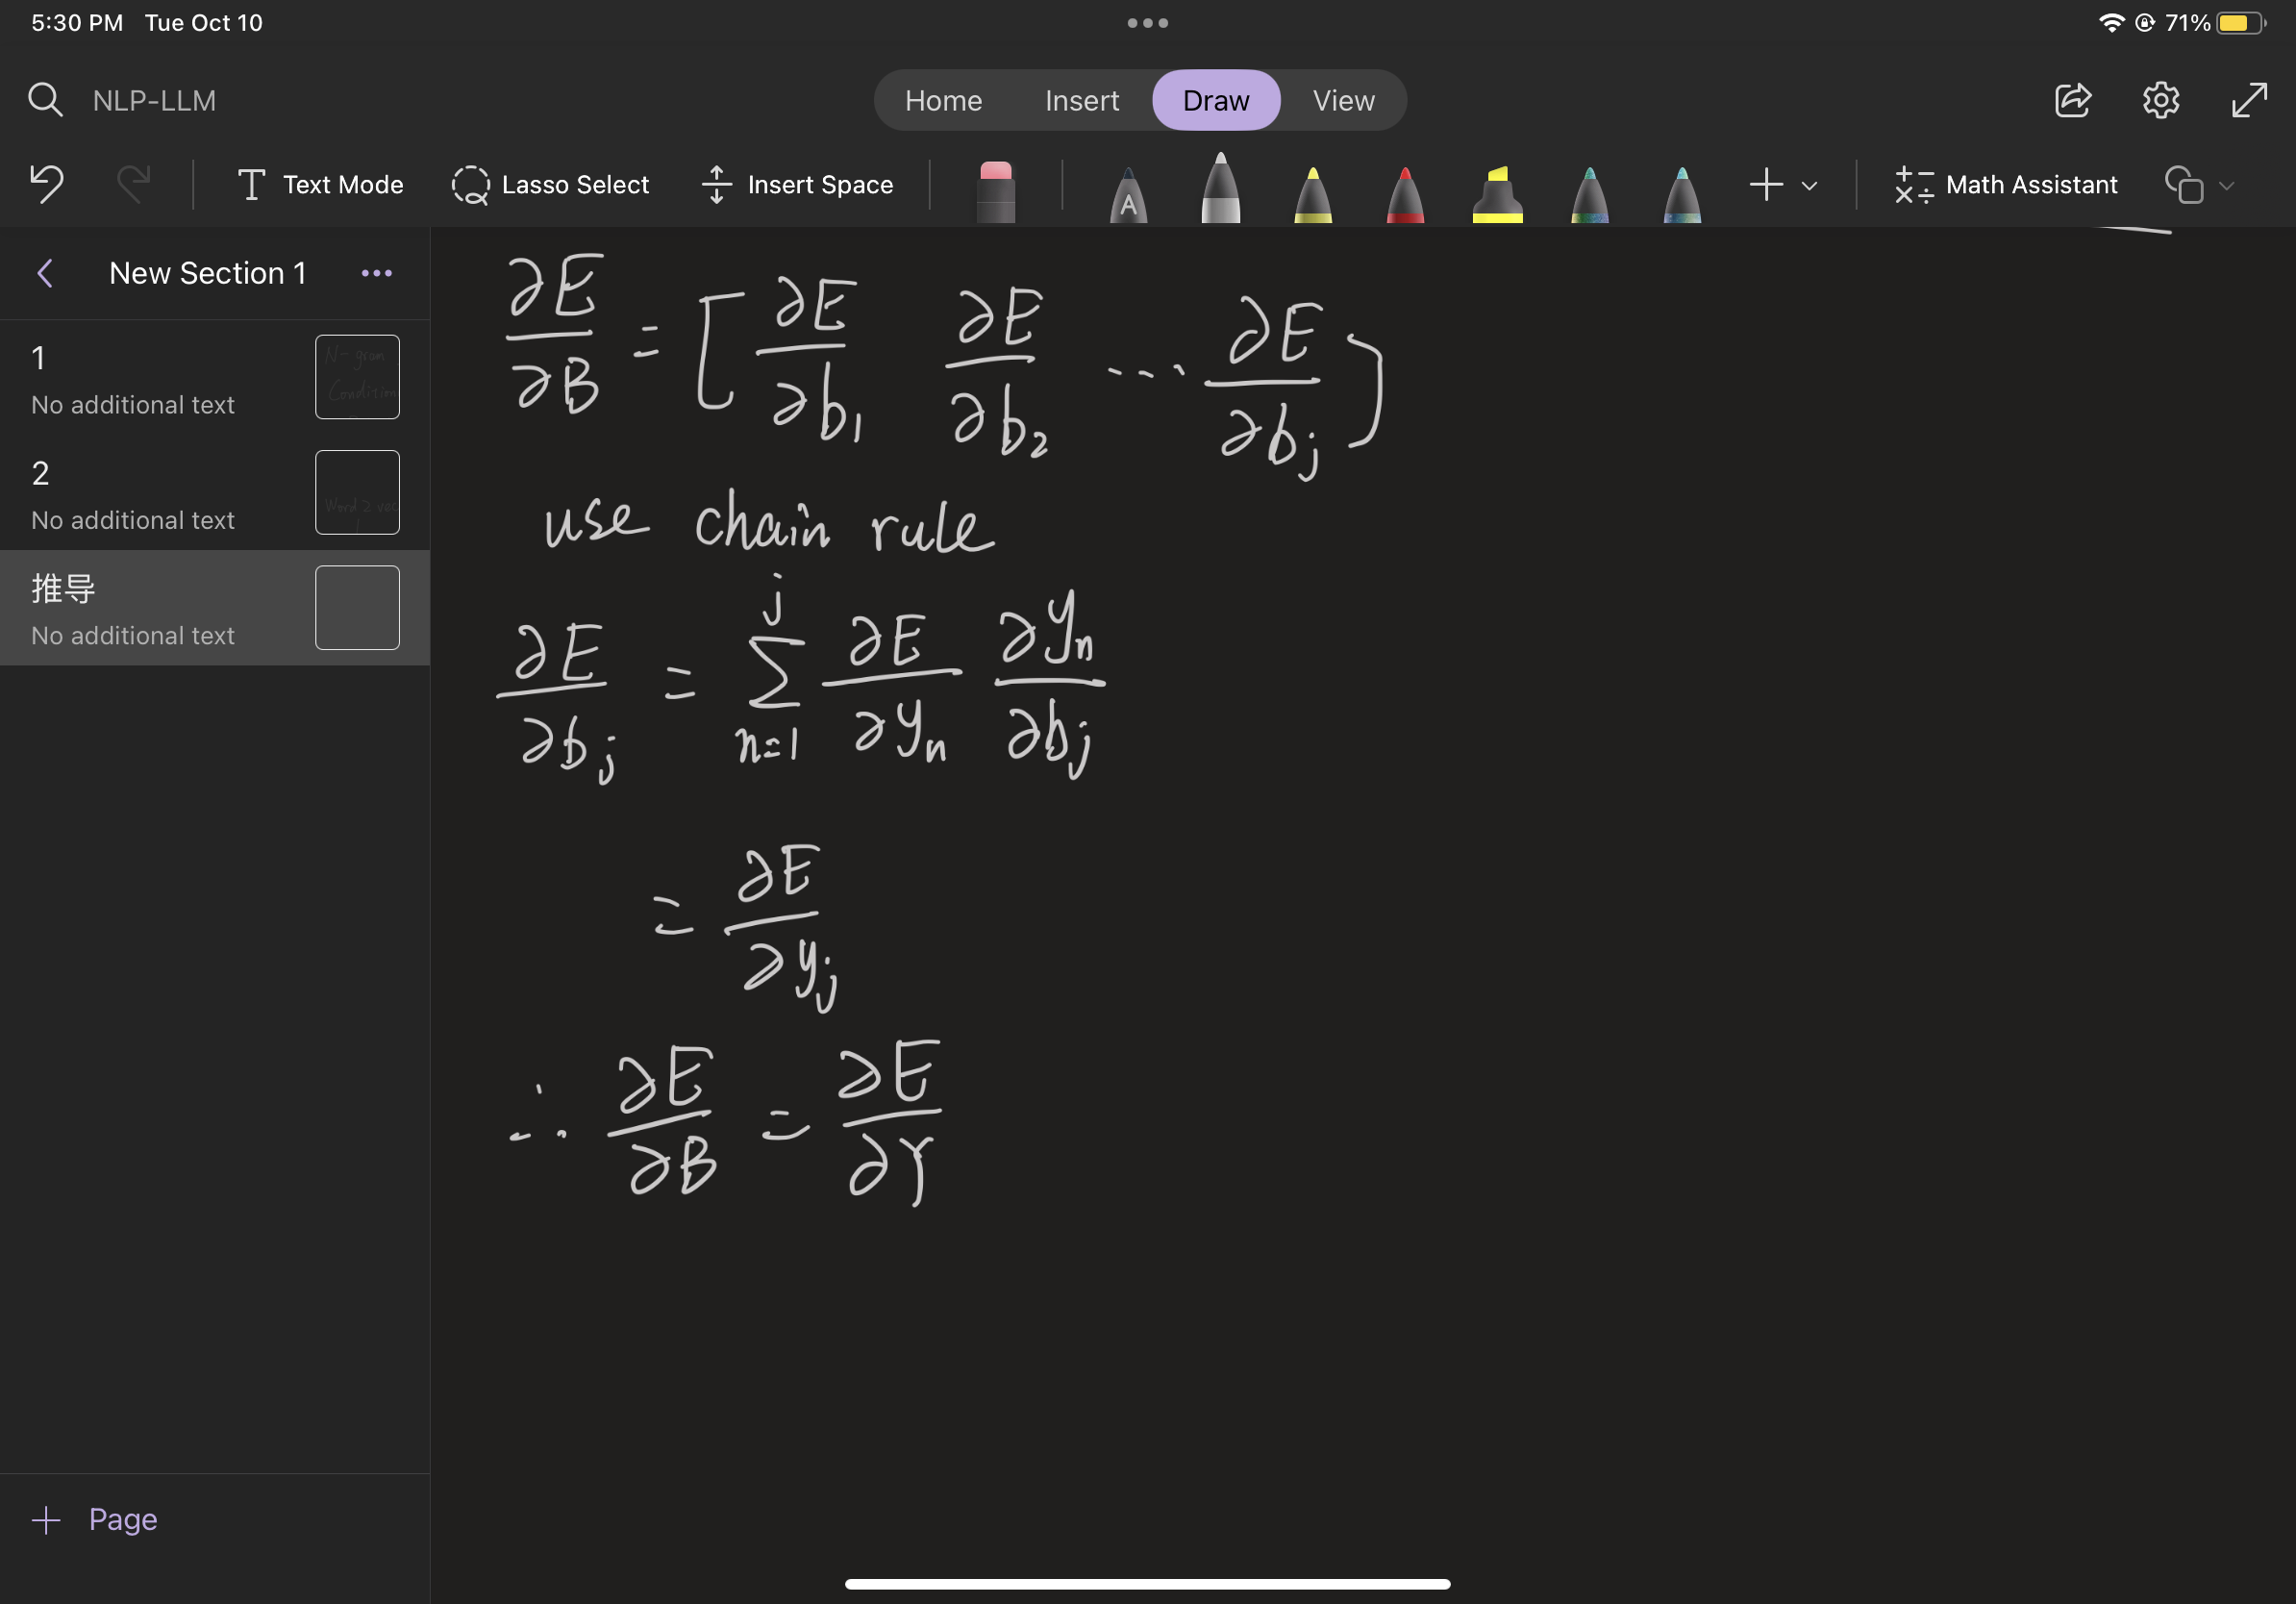 5:30 PM Tue Oct 10 71%
NLP-LLM Home Insert Draw View
Text Mode Lasso Select Insert Space A Math Assistant
New Section 1
1
No additional text
N-gram
Condition
2
No additional text
Word 2 vec
推导
No additional text
+ Page
∂E/∂B = [∂E/∂b₁ ∂E/∂b₂ ... ∂E/∂bⱼ]
use chain rule
∂E/∂bⱼ = ∑ⱼₙ₌₁ ∂E/∂yₙ ∂yₙ/∂bⱼ
= ∂E/∂yⱼ
∴ ∂E/∂B = ∂E/∂Y